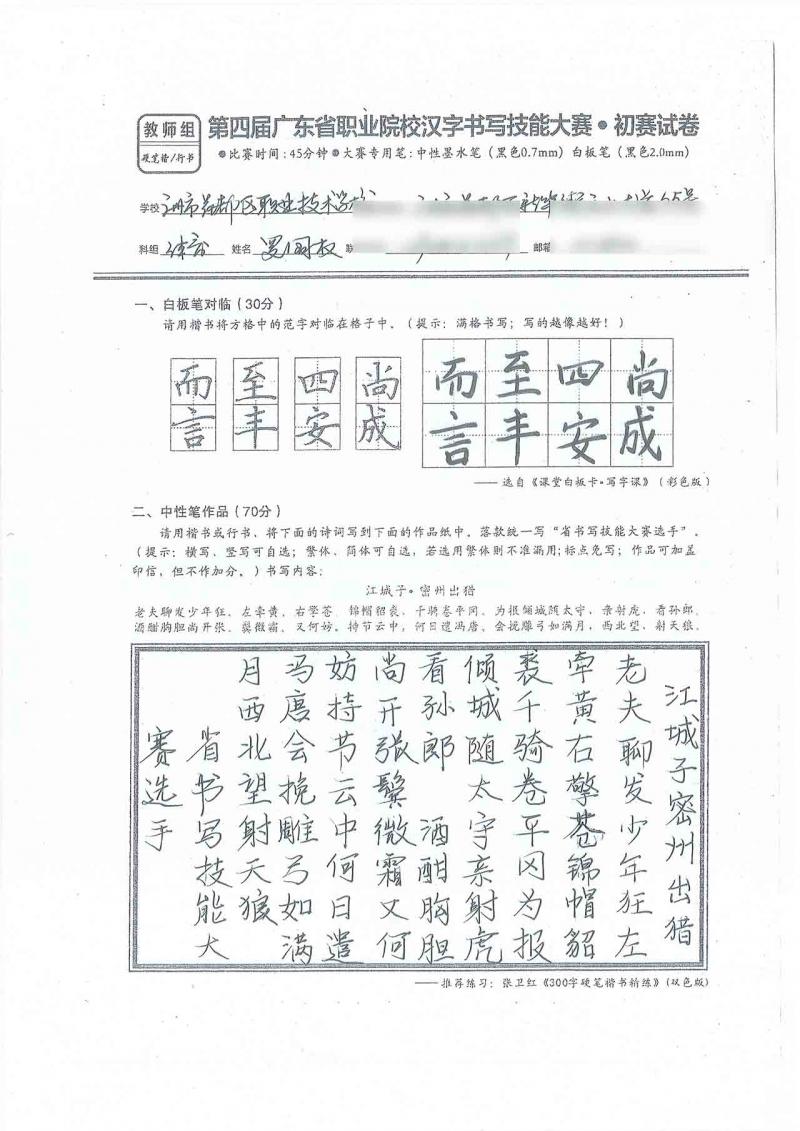 教师组
硬笔楷/行书
第四届广东省职业院校汉字书写技能大赛·初赛试卷
●比赛时间:45分钟 ●大赛专用笔:中性墨水笔(黑色0.7mm)白板笔(黑色2.0mm)
学校 区职业技术学校
科组 体育 姓名 罗国权 联 邮箱
一、白板笔对临(30分)
请用楷书将方格中的范字对临在格子中。(提示:满格书写;写的越像越好!)
而 至 四 尚 而 至 四 尚
言 丰 安 成 言 丰 安 成
——选自《课堂白板卡·写字课》(彩色版)
二、中性笔作品(70分)
请用楷书或行书、将下面的诗词写到下面的作品纸中。落款统一写“省书写技能大赛选手”。
(提示:横写、竖写可自选;繁体、简体可自选,若选用繁体则不准漏用;标点免写;作品可加盖
印信,但不作加分。)书写内容:
江城子·密州出猎
老夫聊发少年狂、左牵黄,右擎苍、锦帽貂裘,千骑卷平冈。为报倾城随太守,亲射虎,看孙郎。
酒酣胸胆尚开张、鬓微霜、又何妨。持节云中,何日遣冯唐。会挽雕弓如满月,西北望,射天狼。
江城子密州出猎
老夫聊发少年狂左
牵黄右擎苍锦帽貂
裘千骑卷平冈为报
倾城随太守亲射虎
看孙郎 酒酣胸胆
尚开张鬓微霜又何
妨持节云中何日遣
冯唐会挽雕弓如满
月西北望射天狼
省书写技能大
赛选手
——推荐练习:张卫红《300字硬笔楷书精练》(双色版)